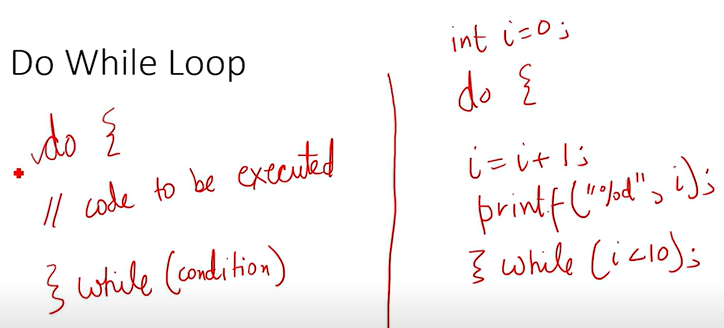 Do While Loop
do {
// code to be executed
} while (condition)
int i=0;
do {
i=i+1;
printf("%d", i);
} while (i<10);